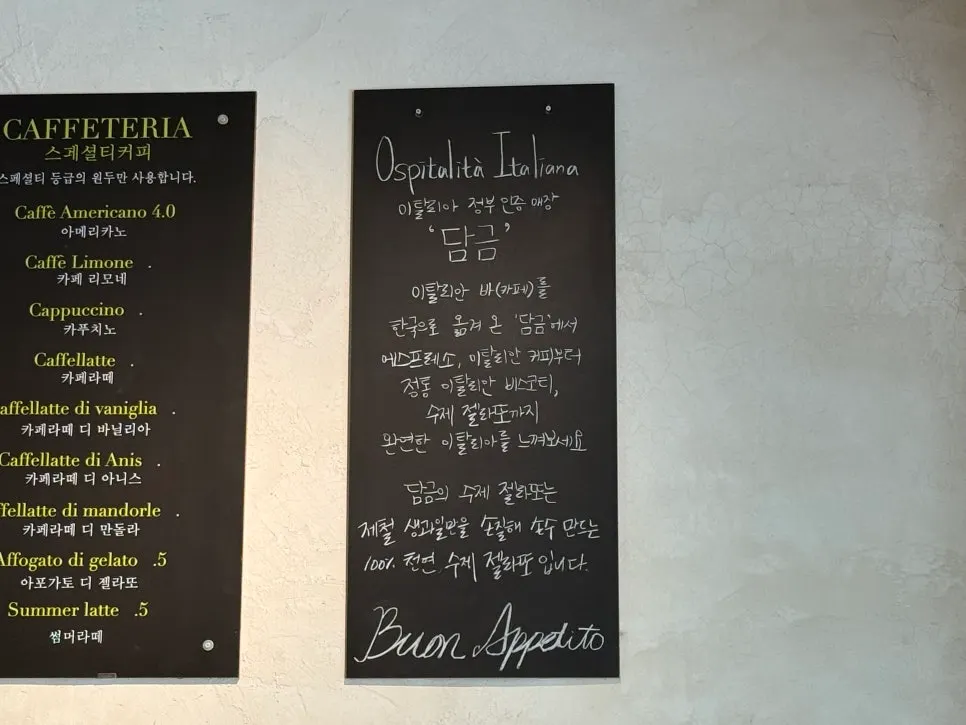 CAFFETERIA
스페셜티커피
스페셜티 등급의 원두만 사용합니다.
Caffè Americano 4.0
아메리카노
Caffè Limone .
카페 리모네
Cappuccino .
카푸치노
Caffellatte .
카페라떼
affellatte di vaniglia .
카페라떼 디 바닐리아
Caffellatte di Anis .
카페라떼 디 아니스
ffellatte di mandorle .
카페라떼 디 만돌라
Affogato di gelato .5
아포가토 디 젤라또
Summer latte .5
썸머라떼
Ospitalità Italiana
이탈리아 정부 인증 매장
‘담금’
이탈리안 바(카페)를
한국으로 옮겨 온 ‘담금’에서
에스프레소, 이탈리안 커피부터
정통 이탈리안 비스코티,
수제 젤라또까지
완연한 이탈리아를 느껴보세요
담금의 수제 젤라또는
제철 생과일만을 손질해 손수 만드는
100% 천연 수제 젤라또 입니다.
Buon Appetito